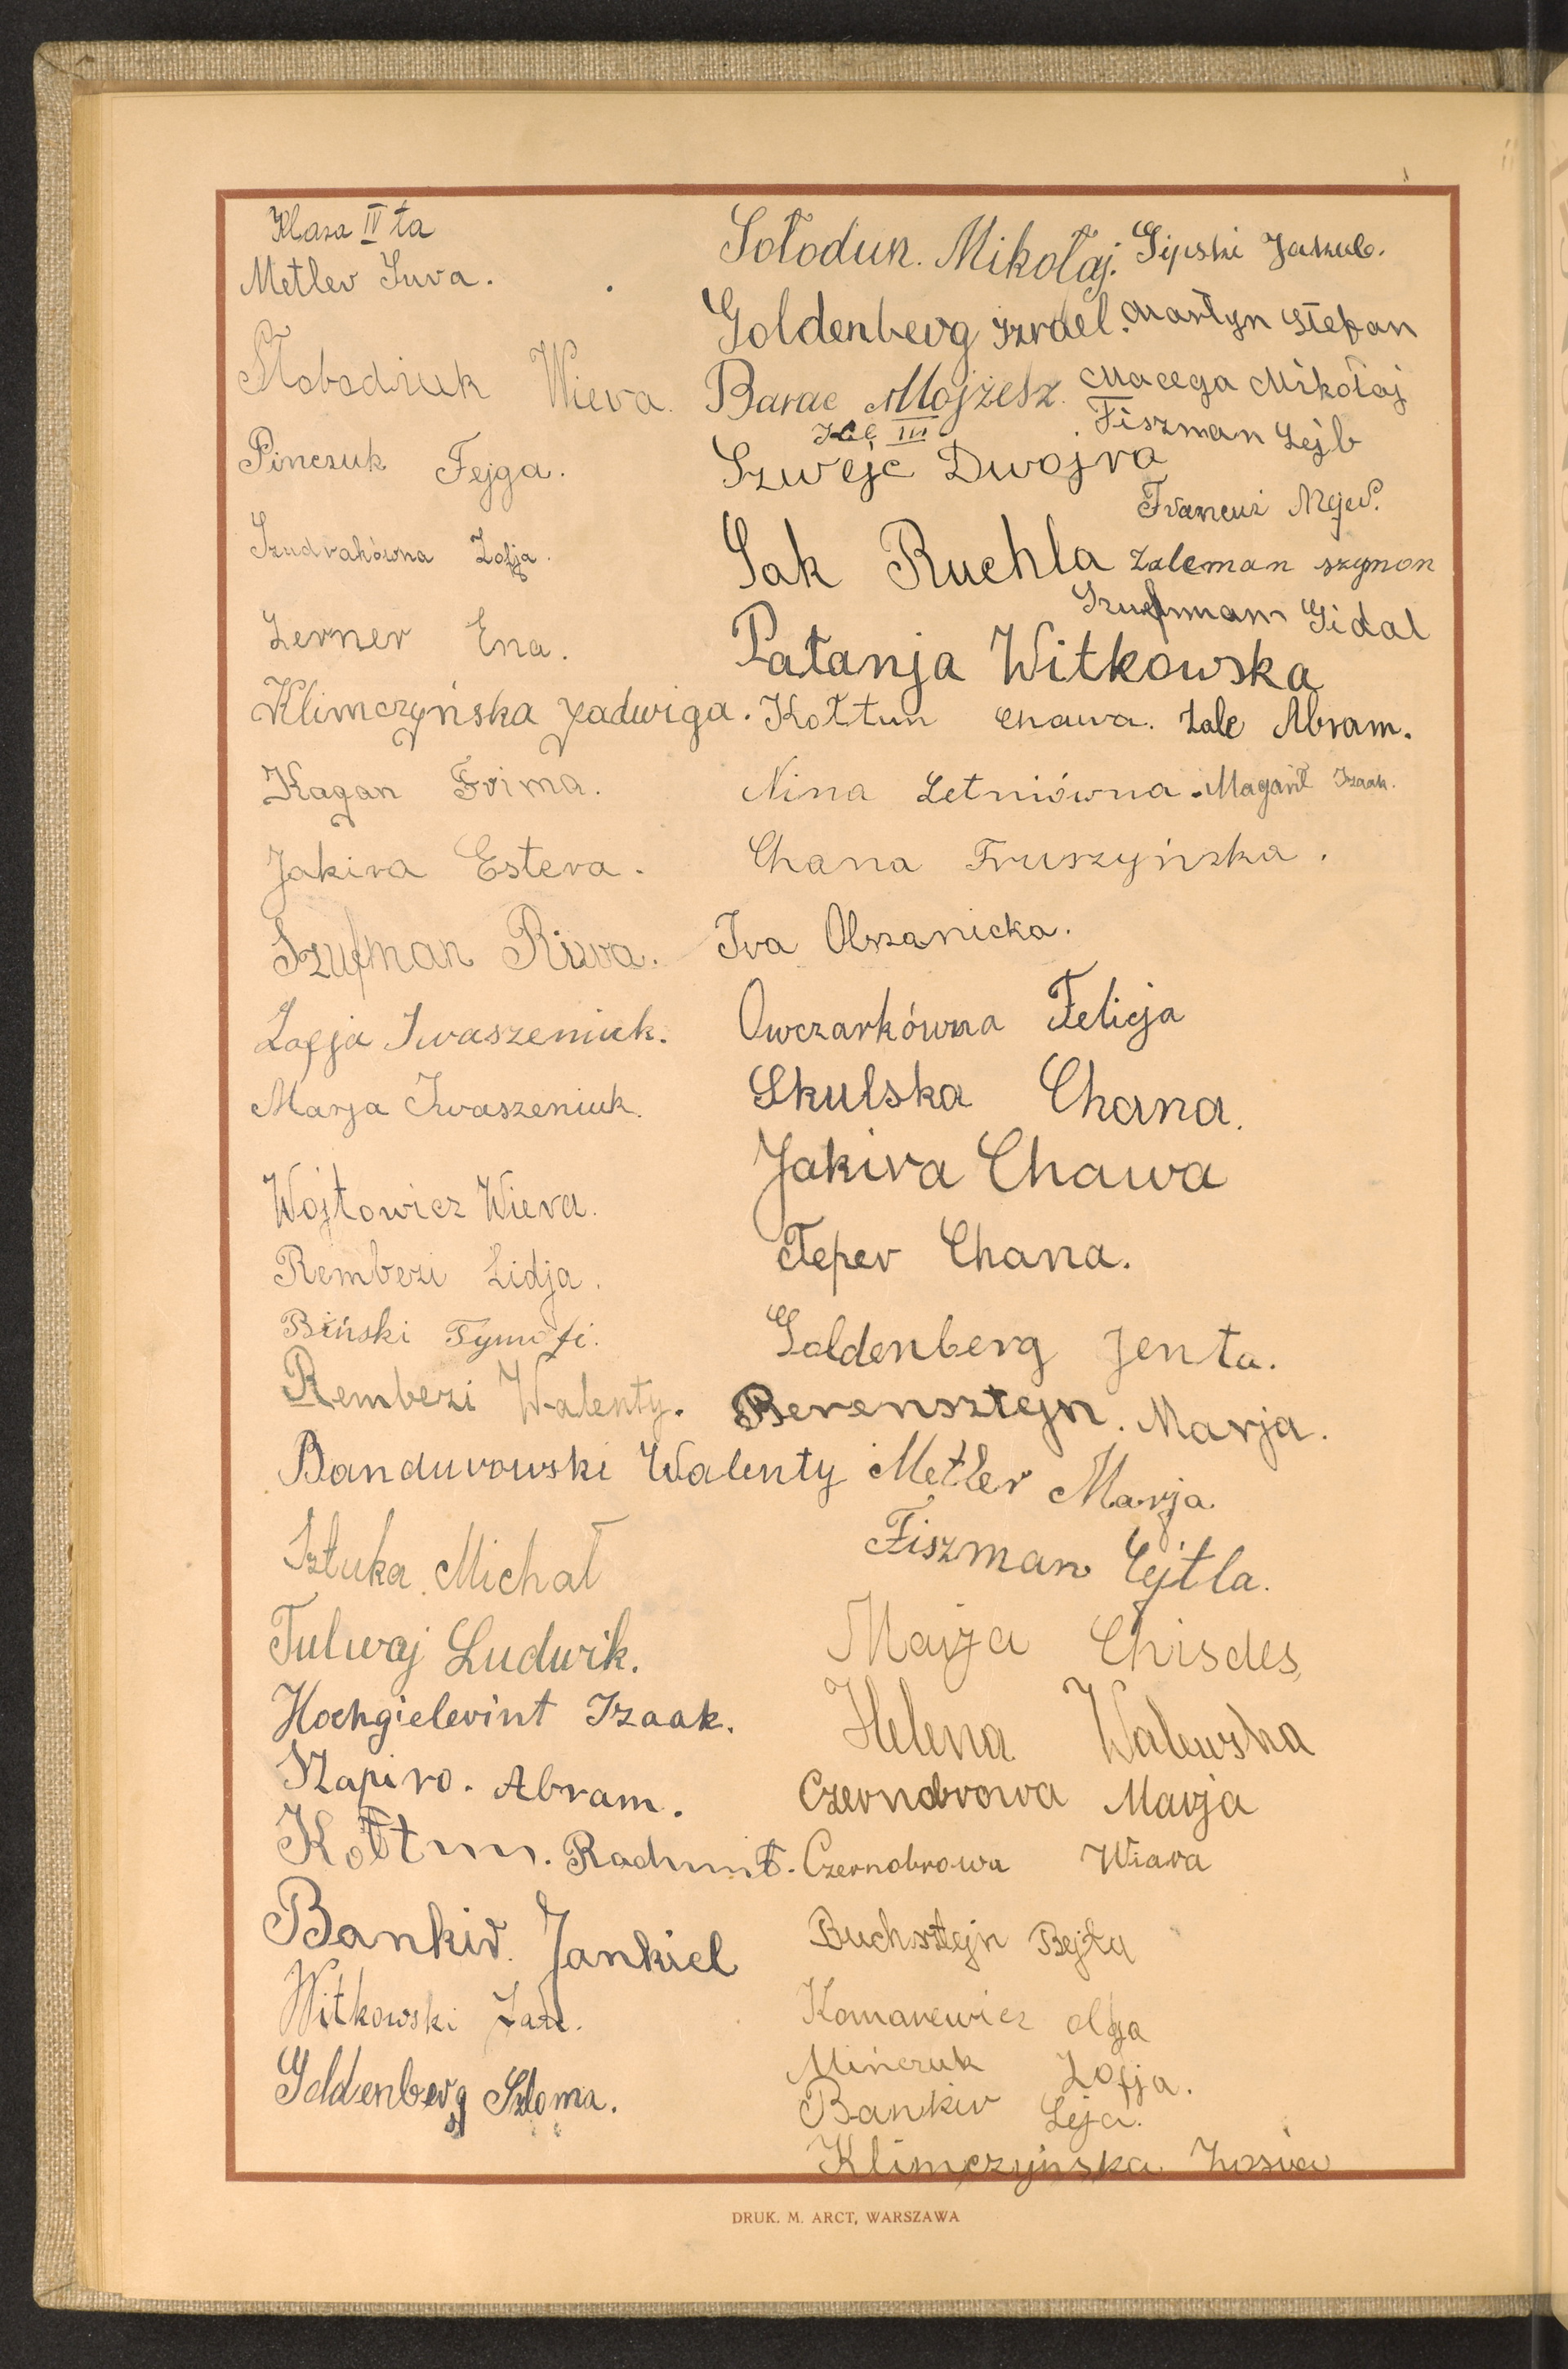 Klasa IV ta
Metler Sura.
Słobodziuk Wiera.
Pinczuk Fejga.
Szudrakówna Zofja.
Lerner Ena.
Klimczyńska Jadwiga.
Kagan Frima.
Jakira Estera.
Szufman Riwa.
Zofja Iwaszeniuk.
Marja Iwaszeniuk.
Wojtowicz Wiera.
Rembezi Lidja.
Biński Tymofi.
Rembezi Walenty.
Bandurowski Walenty
Sztuka. Michał
Tulwaj Ludwik.
Hochgielerint Izaak.
Szapiro. Abram.
Kołtun.
Bankir. Jankiel
Witkowski
Goldenberg Szloma.
Sołodun. Mikołaj.
Goldenberg Izrael.
Barac Mojżesz.
Kl III
Szwejc Dwojra
Sak Ruchla
Patanja Witkowska
Kołtun Chawa.
Nina Letniówna.
Chana Fruszyńska.
Iva Olszanicka.
Owczarkówna Felicja
Skulska Chana.
Jakira Chawa
Teper Chana.
Goldenberg Jenta.
Berensztejn. Marja.
Metler Marja.
Fiszman Cejtla.
Majza Chisdes,
Helena Walewska
Czernobrowa Marja
Czernobrowa Wiara
Buchsztejn Bejla
Komarewicz Olga
Mińczuk Zofja.
Bankir Leja.
Klimczyńska Zosia
Gipski Jakub.
Martyn Stefan
Macega Mikołaj
Fiszman Lejb
Francuz Mejer.
Zaleman Szymon
Szufman Gidal
Zale Abram.
Magant Izaak.
DRUK. M. ARCT, WARSZAWA